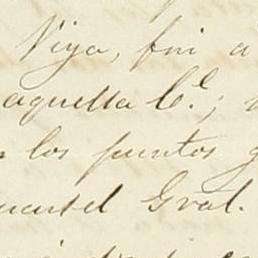 Viya, fui a
aquella C.e;
los puntos
cuartel Gral.